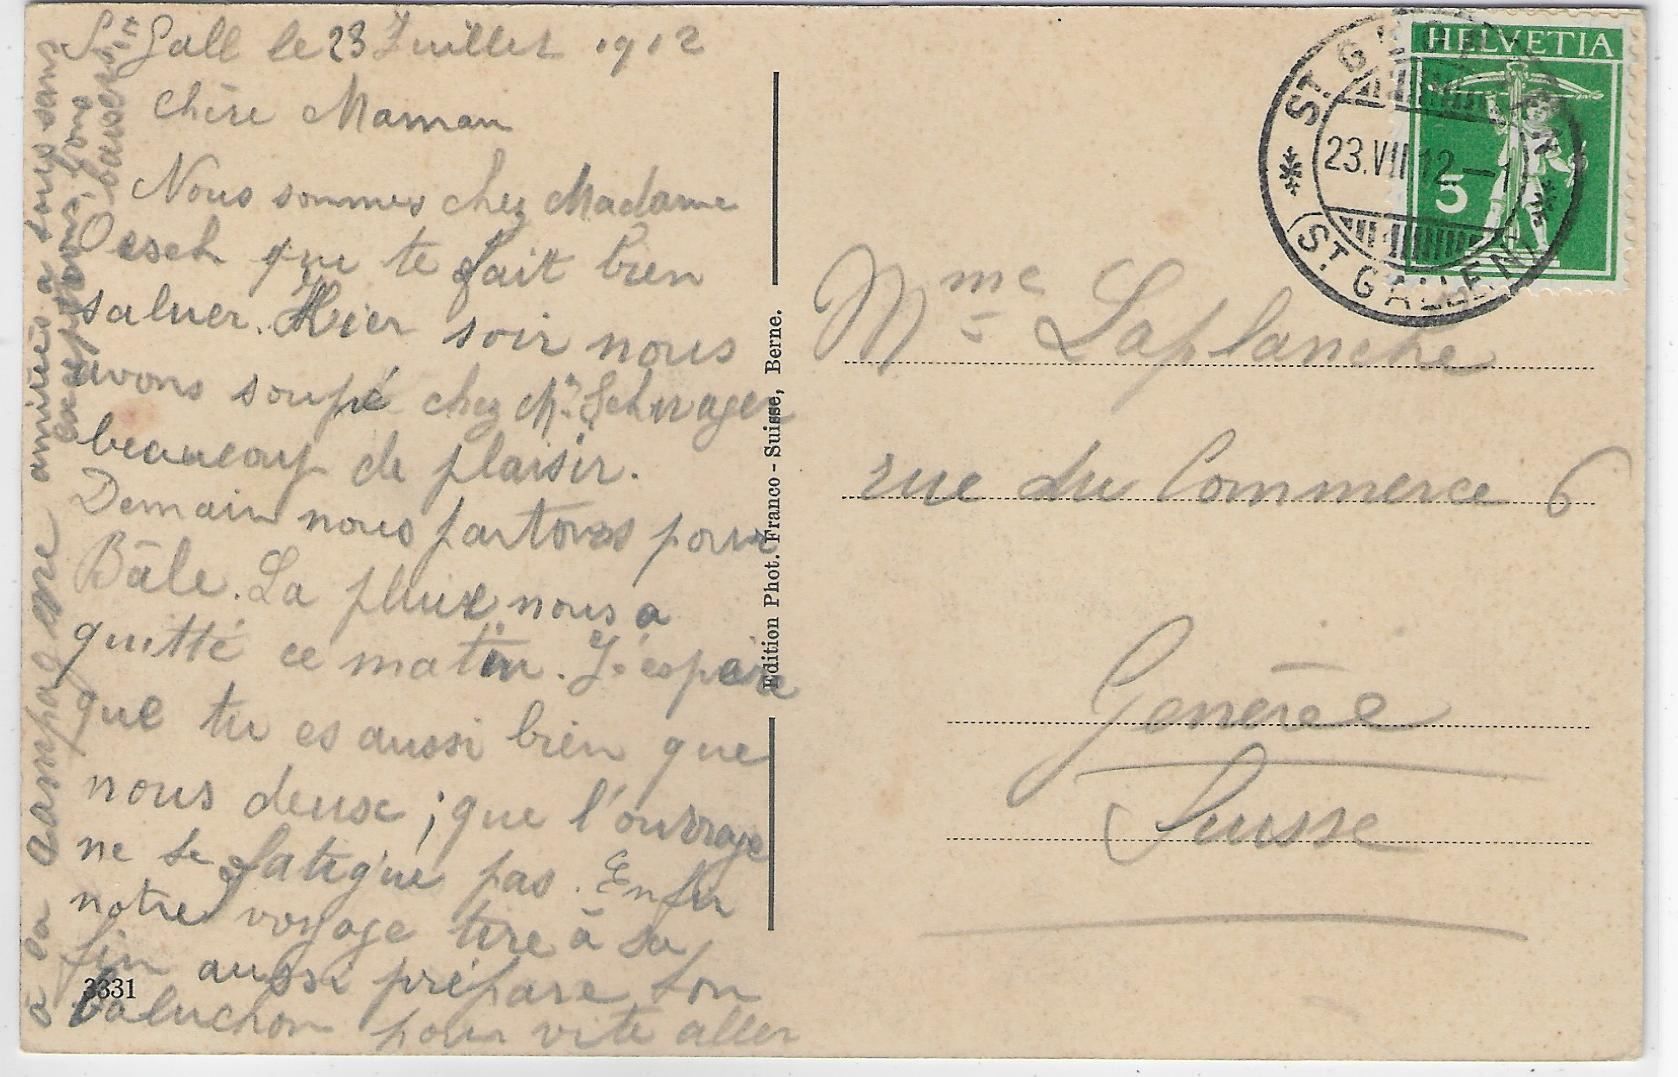 St Gall le 23 Juillet 1912
Chère Maman
Nous sommes chez Madame
Oesch que te fait bien
saluer. Hier soir nous
avons soupé chez Mr. Schwager
beaucoup de plaisir.
Demain nous partons pour
Bâle. La pluie nous a
quitté ce matin. J'éspère
que tu es aussi bien que
nous deux; que l'ouvrage
ne te fatigue pas. Enfin
notre voyage tire à sa
fin aussi prépare ton
baluchon pour vite aller
à la campagne amitiés a tous sans
exceptions, bons
baisers
3331
Edition Phot. Franco-Suisse, Berne.
HELVETIA
5
ST. GALLEN
23.VII.12.–1
(ST. GALLEN)
Mme Laplanche
rue du Commerce 6
Genève
Suisse